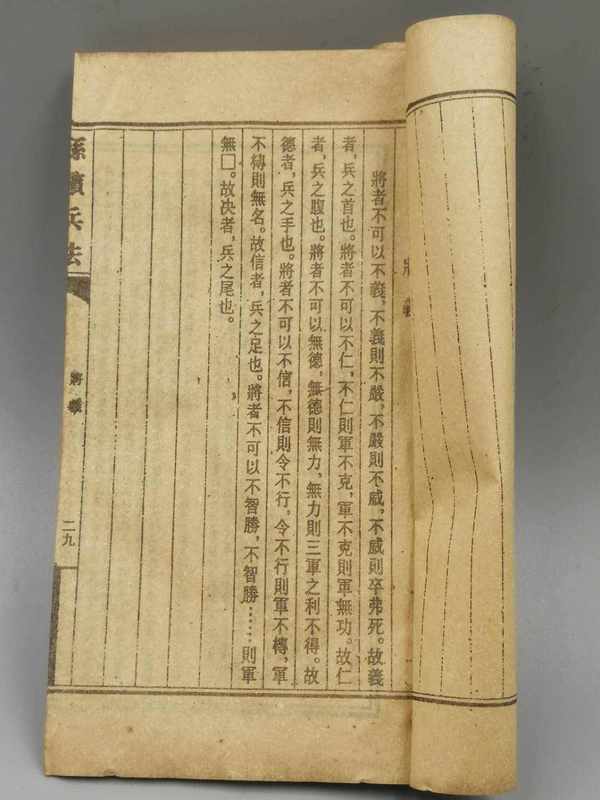 將義
將者不可以不義,不義則不嚴,不嚴則不威,不威則卒弗死。故義
者,兵之首也。將者不可以不仁,不仁則軍不克,軍不克則軍無功。故仁
者,兵之腹也。將者不可以無德,無德則無力,無力則三軍之利不得。故
德者,兵之手也。將者不可以不信,不信則令不行,令不行則軍不槫,軍
不槫則無名。故信者,兵之足也。將者不可以不智勝,不智勝……則軍
無□。故决者,兵之尾也。
孫臏兵法
將義
二九